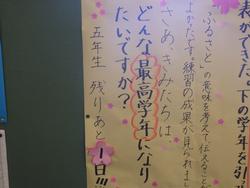 表ができた。下の学年を引
「ふるさと」の意味を考えて伝えることが
よかったです。練習の成果が見られまし
さあ、きみたちは
どんな最高学年になり
たいですか？
五年生 残りあと
1日!!!